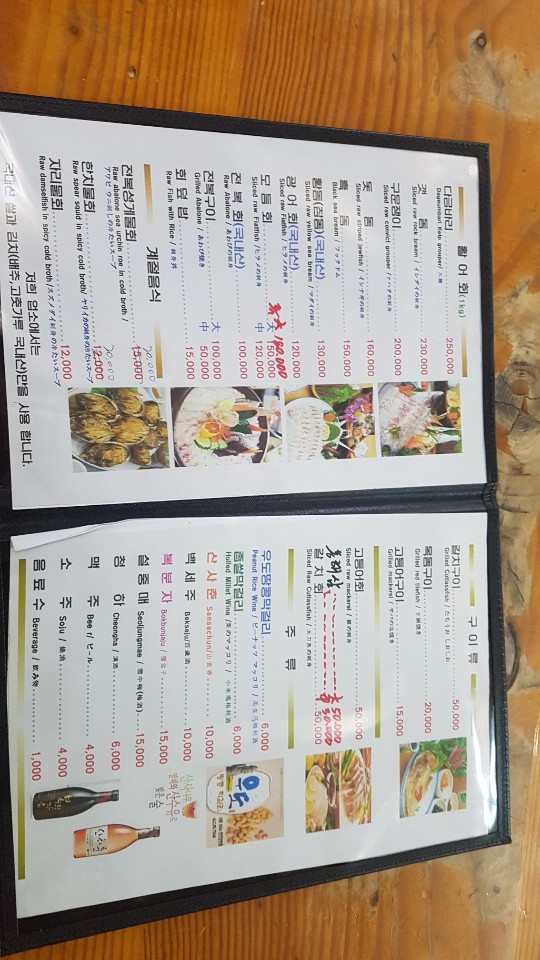 활 어 회(1kg)
다금바리 250,000
Dagewnbari Kelp grouper/
갯 돔 230,000
Sliced raw rock bream / イシダイの刺身
구문쟁이 200,000
Sliced raw convict grouper / ハタの刺身
돗 돔 160,000
Sliced raw striped jewfish / イシナギの刺身
흑 돔 150,000
Black sea bream /
황돔(참돔)(국내산) 130,000
Sliced raw yellow sea bream / マダイの刺身
광 어 회(국내산) 120,000
Sliced raw Flatfish / ヒラメの刺身
180,000
모 듬 회 大 150,000
Sliced raw Flatfish / ヒラメの刺身 中 120,000
전 복 회 (국내산) 100,000
Raw Abalone / あわびの刺身
전복구이 大 100,000
Grilled Abalone / あわび焼き 中 50,000
회 덮 밥 15,000
Raw Fish with Rice / 刺身丼
계절음식
전복성게물회 15,000 20,000
Raw abalone sea urchin roe in cold broth /
アワビ ウニ刺しの冷たいスープ
한치물회 12,000 20,000
Raw spear squid in spicy cold broth/ ヤリイカの刺身の冷たいスープ
자리물회 12,000
Raw damselfish in spicy cold broth /スズメダイ刺身の冷たいスープ
저희 업소에서는
국내산 쌀과 김치(배추,고춧가루 국내산)만을 사용 합니다.
구 이 류
갈치구이 50,000
Grilled Cutlassfish / たちうおしおじお
옥돔구이 20,000
Grilled red tilefish /
고등어구이 15,000
Grilled mackerel / サバの塩焼き
고등어회 50,000
Sliced raw mackerel / 鯖の刺身
돌해삼 小 50,000
갈 치 회 50,000
Sliced Raw Cutlassfish / 太刀魚の刺身
주 류
우도땅콩막걸리 6,000
Peanut Rice Wine / ピーナッツ マッコリ / 花生马格利酒
좁쌀막걸리 6,000
Hulled Millet Wine / 粟のマッコリ / 小米马格利酒
산 사 춘 10,000
Sansachun/山査春
백 세 주 10,000
Bekseju/百歳酒
복 분 자 15,000
Bokbunjaju / 覆盆子
설 중 매 15,000
Seoljungmae / 雪中梅(梅酒)
청 하 6,000
Cheongha / 清酒
맥 주 4,000
Bee r/ ビール
소 주 4,000
Soju / 焼酒
음 료 수 1,000
Beverage / 飲み物
우도
산사나무
열매와 산수유로
빚은 술